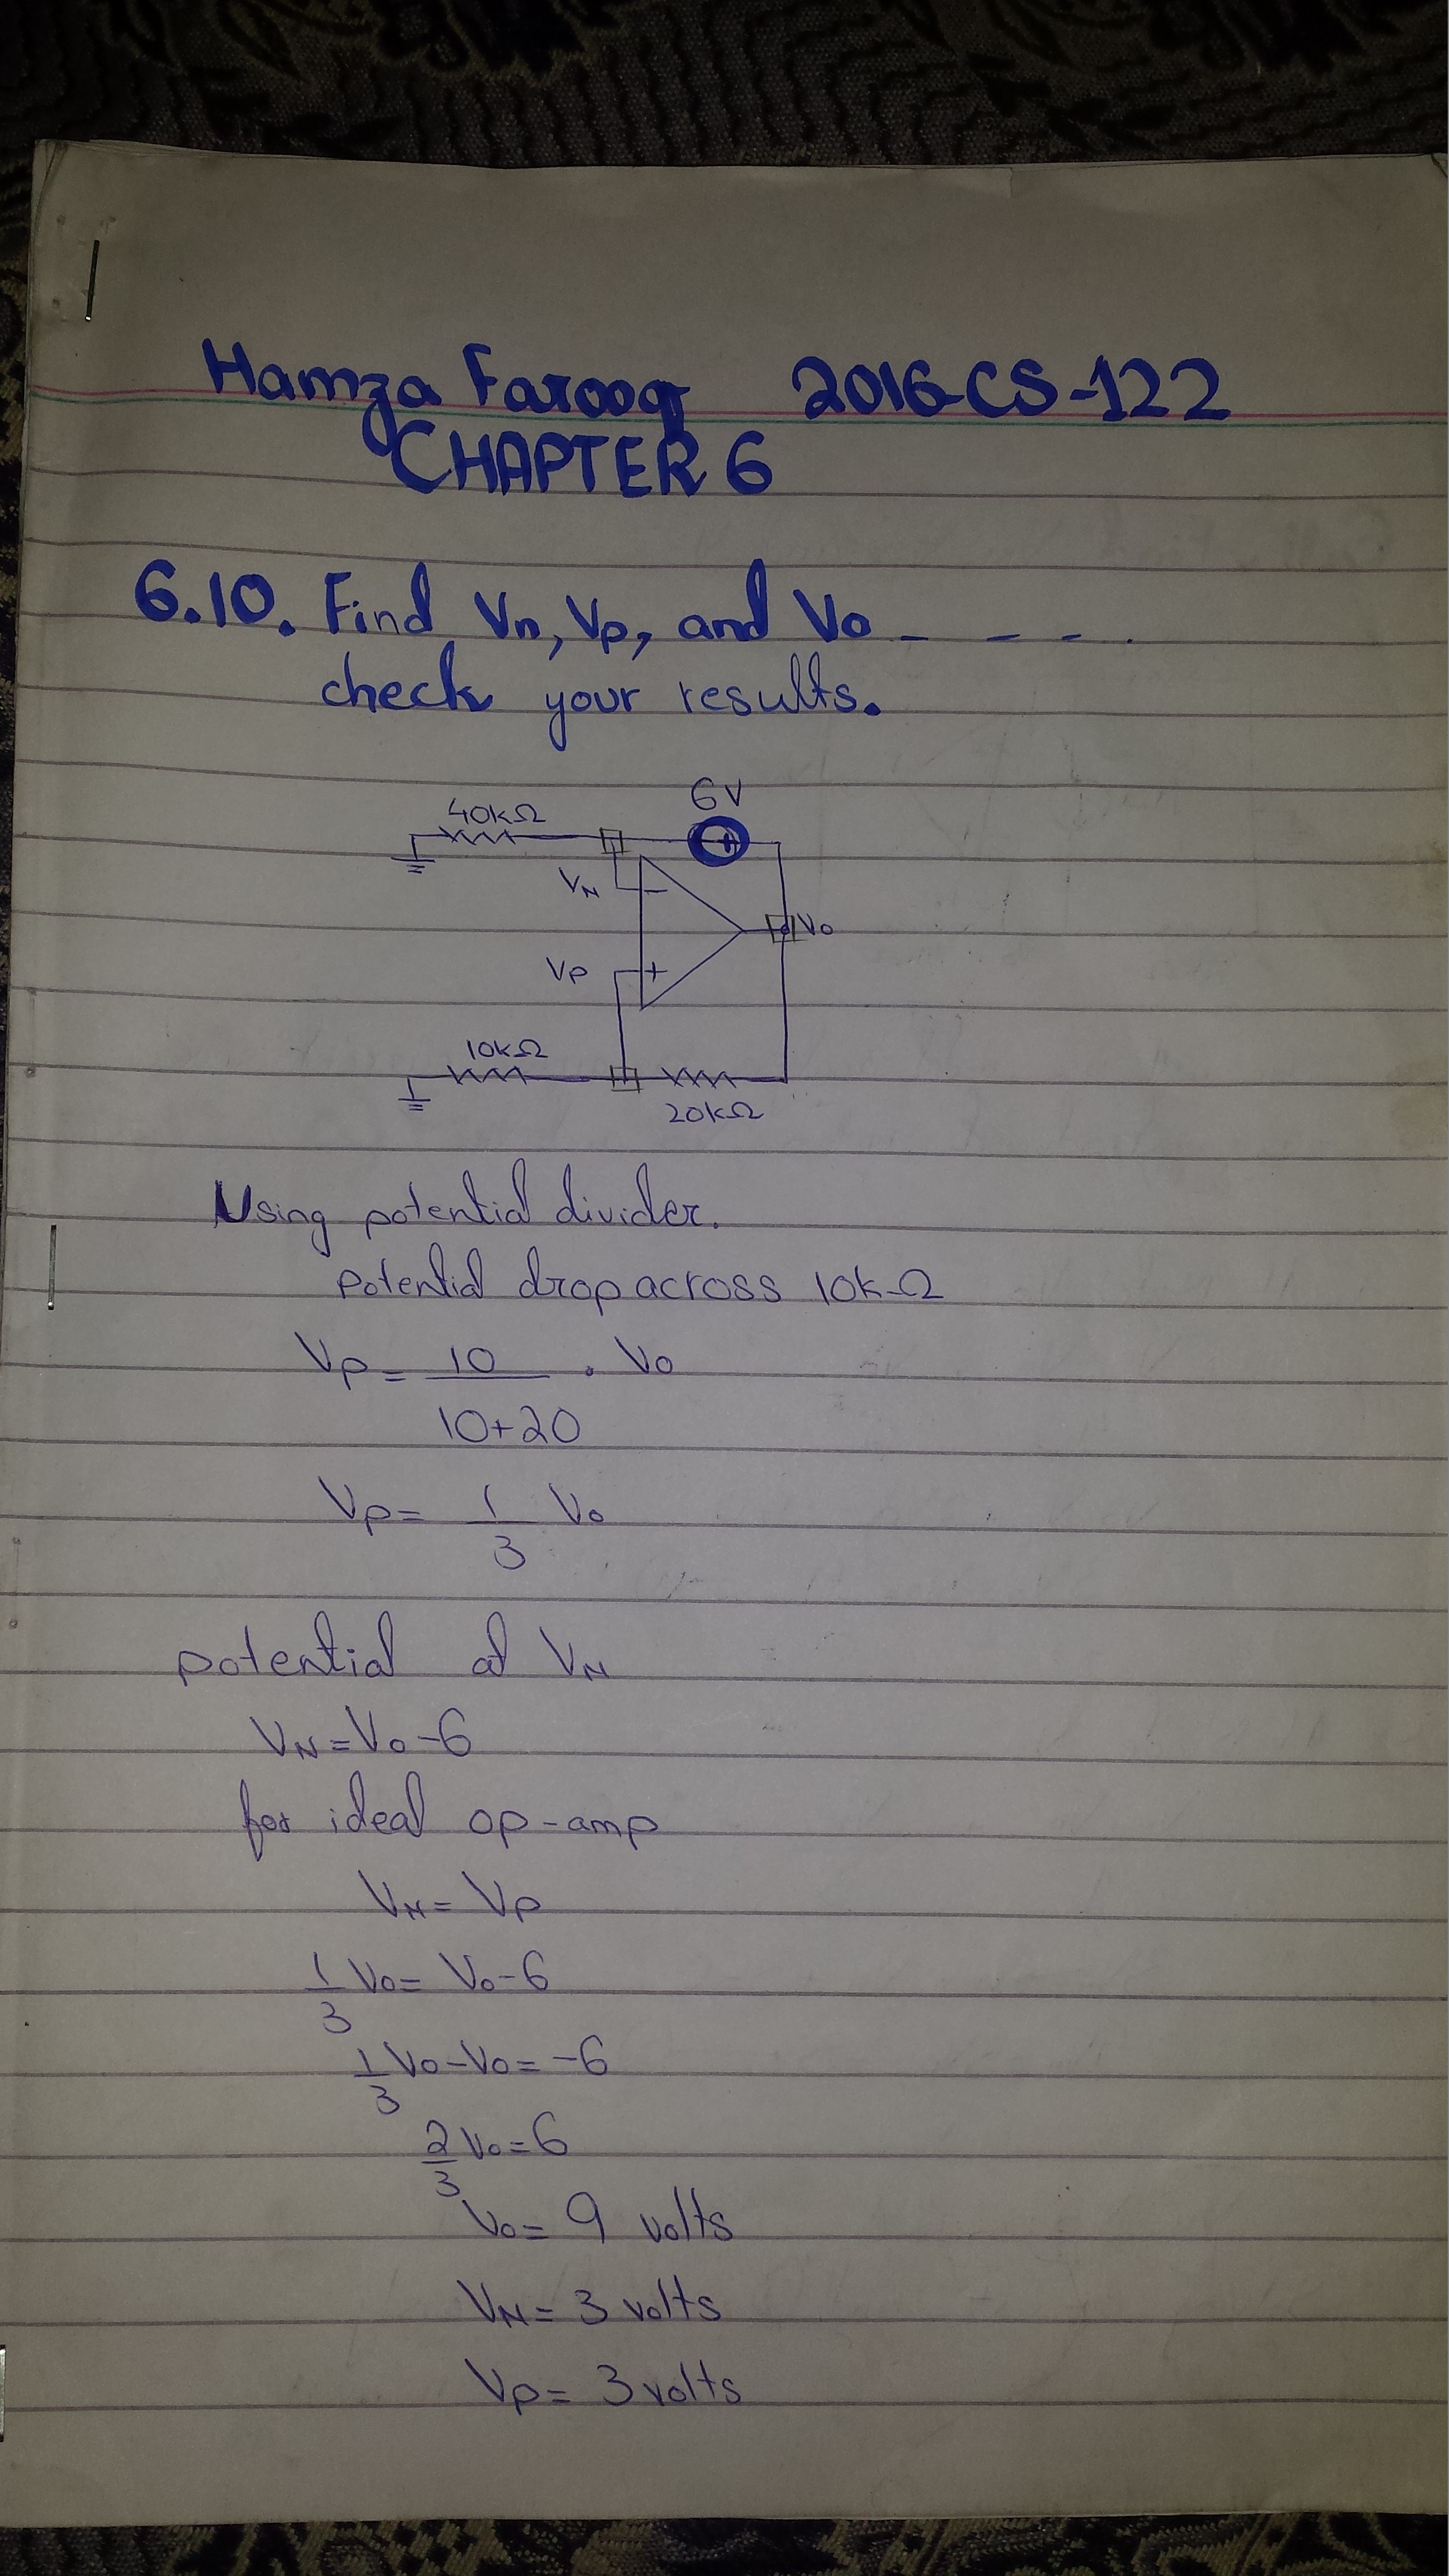 Hamza Farooq 2016-CS-122
CHAPTER 6
6.10. Find Vn, Vp, and Vo - - - .
check your results.
6V
40kΩ
+
VN
−
Vo
Vp
+
10kΩ
20kΩ
Using potential divider.
Potential drop across 10kΩ
Vp = 10 . Vo
10+20
Vp = 1 Vo
3
potential at VN
VN = Vo - 6
for ideal op-amp
VN = Vp
1 Vo = Vo - 6
3
1 Vo - Vo = -6
3
2 Vo = 6
3
Vo = 9 volts
VN = 3 volts
Vp = 3 volts